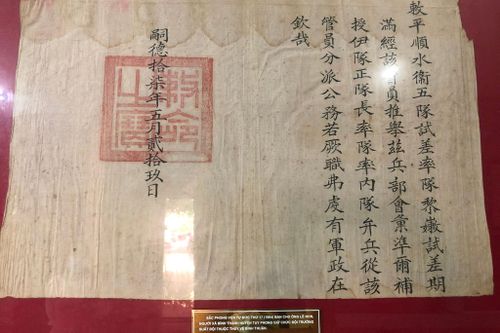 敕平順水衛五隊試差率隊黎試差期
滿經該管員推舉茲兵部會彙準爾補
授伊隊正隊長率隊率內隊弁兵從該
管員分派公務若厥職弗虔有軍政在
欽哉
嗣德拾柒年五月貳拾玖日
敕命之寶
SẮC PHONG TỰ ĐỨC THỨ 17 BAN CHO ÔNG LÊ
NGƯỜI XÃ BÌNH THẠNH HUYỆN TUY PHONG GIỮ CHỨC ĐỘI TRƯỞNG
SUẤT ĐỘI THUỘC THỦY VỆ BÌNH THUẬN.